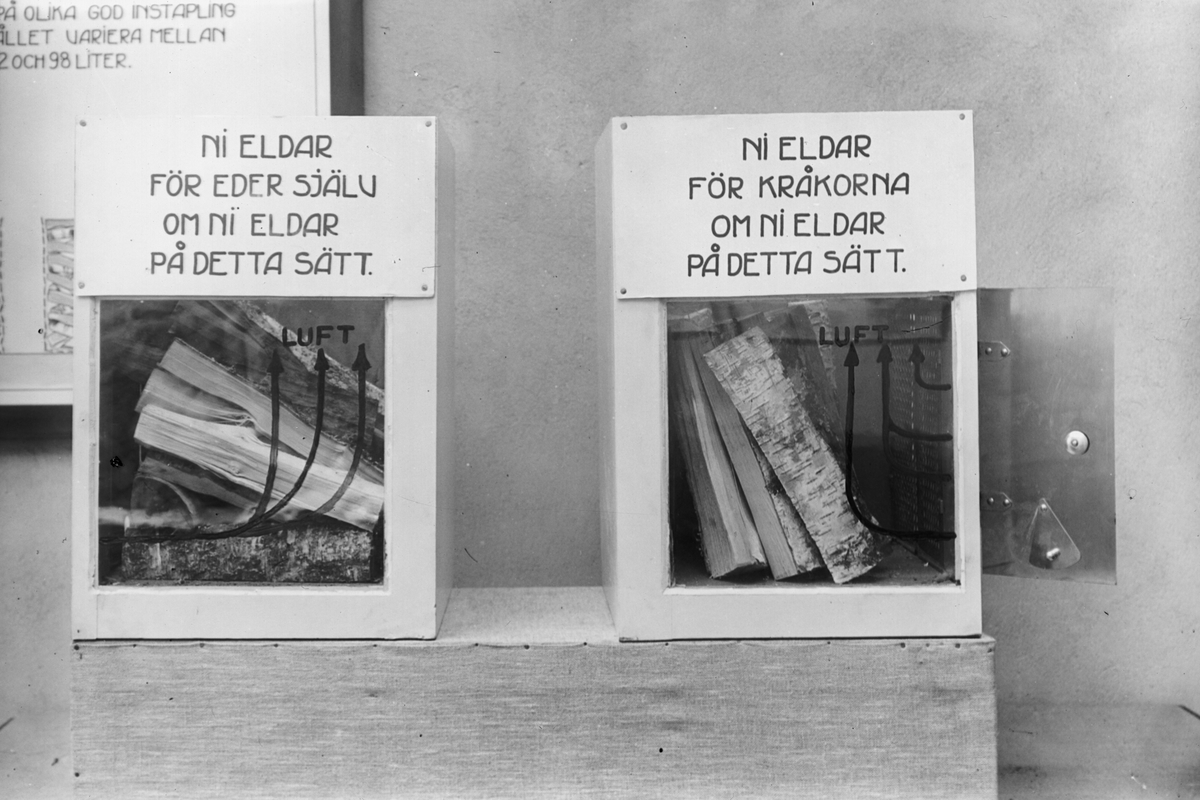 PÅ OLIKA GOD INSTAPLING
VARIERA MELLAN
OCH 98 LITER.
NI ELDAR
FÖR EDER SJÄLV
OM NI ELDAR
PÅ DETTA SÄTT.
LUFT
NI ELDAR
FÖR KRÅKORNA
OM NI ELDAR
PÅ DETTA SÄTT.
LUFT